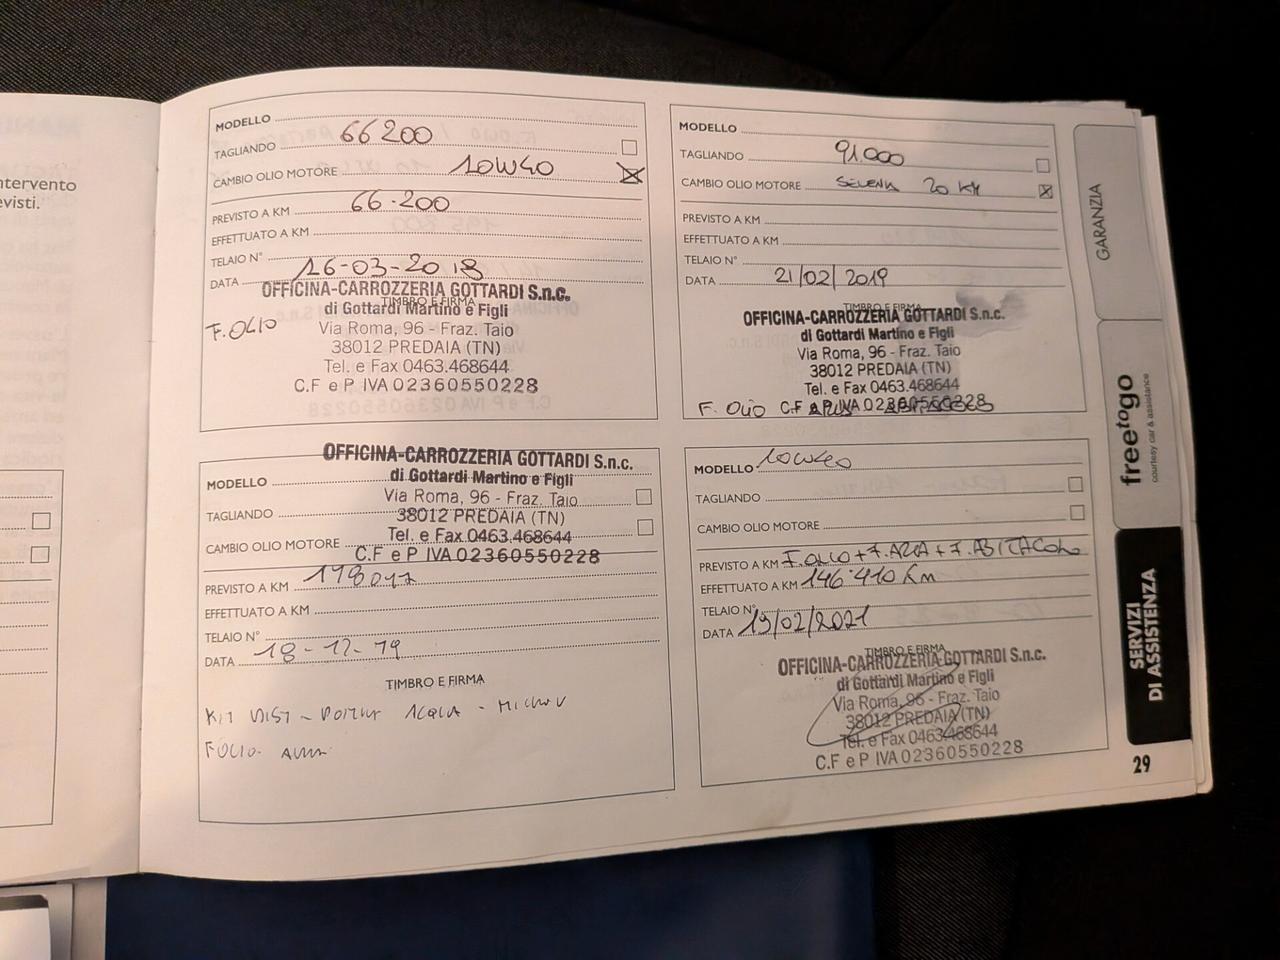 ntervento
evisti.
MODELLO
TAGLIANDO 66200
CAMBIO OLIO MOTORE 10W40
PREVISTO A KM 66.200
EFFETTUATO A KM
TELAIO N°
DATA 16-03-2018
TIMBRO E FIRMA
OFFICINA-CARROZZERIA GOTTARDI S.n.c.
di Gottardi Martino e Figli
F. OLIO
Via Roma, 96 - Fraz. Taio
38012 PREDAIA (TN)
Tel. e Fax 0463.468644
C.F e P IVA 02360550228
MODELLO
TAGLIANDO 91.000
CAMBIO OLIO MOTORE SELENIA 20 KM
PREVISTO A KM
EFFETTUATO A KM
TELAIO N°
DATA 21/02/2019
TIMBRO E FIRMA
OFFICINA-CARROZZERIA GOTTARDI S.n.c.
di Gottardi Martino e Figli
Via Roma, 96 - Fraz. Taio
38012 PREDAIA (TN)
Tel. e Fax 0463.468644
F. OLIO C.F e P IVA 02360550228
OFFICINA-CARROZZERIA GOTTARDI S.n.c.
di Gottardi Martino e Figli
MODELLO
Via Roma, 96 - Fraz. Taio
TAGLIANDO
38012 PREDAIA (TN)
CAMBIO OLIO MOTORE
Tel. e Fax 0463.468644
C.F e P IVA 02360550228
PREVISTO A KM
EFFETTUATO A KM
TELAIO N°
DATA 18-12-19
TIMBRO E FIRMA
KIT DIST - POMPA ACQUA -
F OLIO -
MODELLO 10W40
TAGLIANDO
CAMBIO OLIO MOTORE
PREVISTO A KM F.OLIO + F.ARIA + F.ABITACOLO
EFFETTUATO A KM 146.410 Km
TELAIO N°
DATA 19/02/2021
TIMBRO E FIRMA
OFFICINA-CARROZZERIA GOTTARDI S.n.c.
di Gottardi Martino e Figli
Via Roma, 96 - Fraz. Taio
38012 PREDAIA (TN)
Tel. e Fax 0463.468644
C.F e P IVA 02360550228
GARANZIA
freetogo
courtesy car & assistance
SERVIZI
DI ASSISTENZA
29